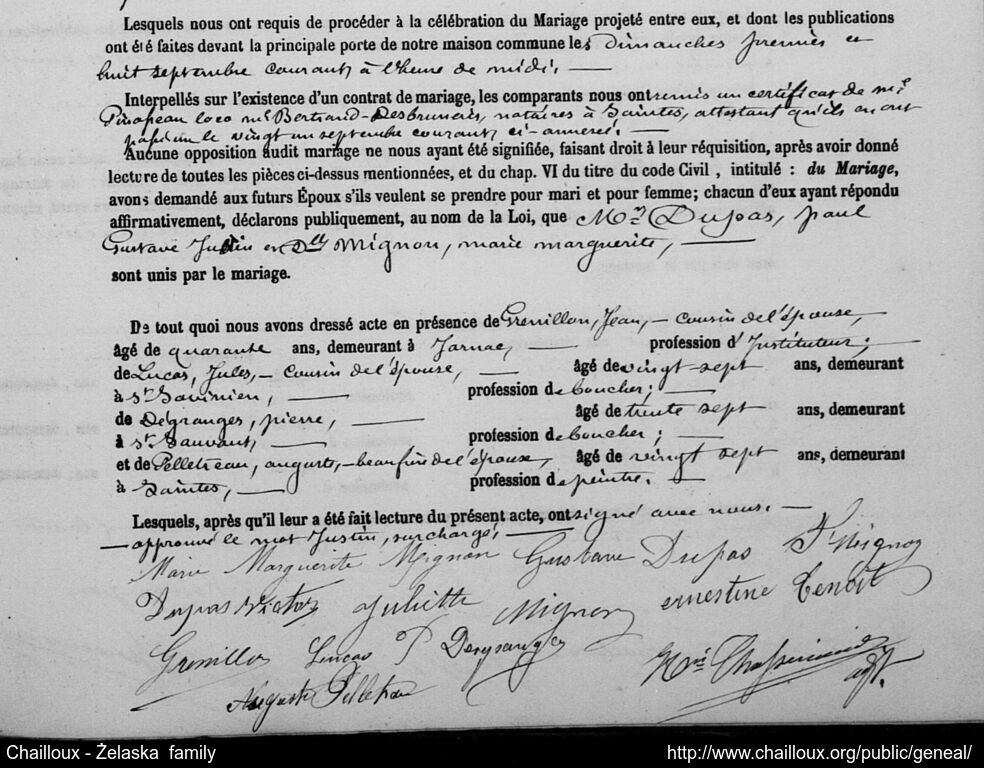 Lesquels nous ont requis de procéder à la célébration du Mariage projeté entre eux, et dont les publications
ont été faites devant la principale porte de notre maison commune les Dimanches premier et
huit septembre courant, à l'heure de midi. —
Interpellés sur l'existence d'un contrat de mariage, les comparants nous ont remis un certificat de Me
loco Me Bertrand-Desbruneris, notaires à Saintes, attestant qu'ils en ont
passé un le vingt un septembre courant, ci-annexé. —
Aucune opposition audit mariage ne nous ayant été signifiée, faisant droit à leur réquisition, après avoir donné
lecture de toutes les pièces ci-dessus mentionnées, et du chap. VI du titre du code Civil, intitulé : du Mariage,
avons demandé aux futurs Époux s'ils veulent se prendre pour mari et pour femme; chacun d'eux ayant répondu
affirmativement, déclarons publiquement, au nom de la Loi, que Mr Dupas, paul
Gustave Justin et Dlle Mignon, marie marguerite, —
sont unis par le mariage.
De tout quoi nous avons dressé acte en présence de Grenillon, Jean, — cousin de l'épouse, —
âgé de quarante ans, demeurant à Jarnac, — profession d'Instituteur; —
de Lucas, Jules, — cousin de l'épouse, — âgé de vingt-sept ans, demeurant
à St Savinien, — profession de boucher; —
de Dégranges, pierre, — âgé de trente sept ans, demeurant
à St Sauvant, — profession de boucher; —
et de Pelletreau, auguste, — beau frère de l'épouse, âgé de vingt sept ans, demeurant
à Saintes, — profession de peintre. —
Lesquels, après qu'il leur a été fait lecture du présent acte, ont signé avec nous. —
— approuvé le mot Justin, surchargé. —
Marie Marguerite Mignon Gustave Dupas Mignon
Dupas Victor Juliette Mignon ernestine Benoit
Grenillon Lucas P Degranges
Auguste Pelletreau adjt.
Chailloux - Żelaska family http://www.chailloux.org/public/geneal/